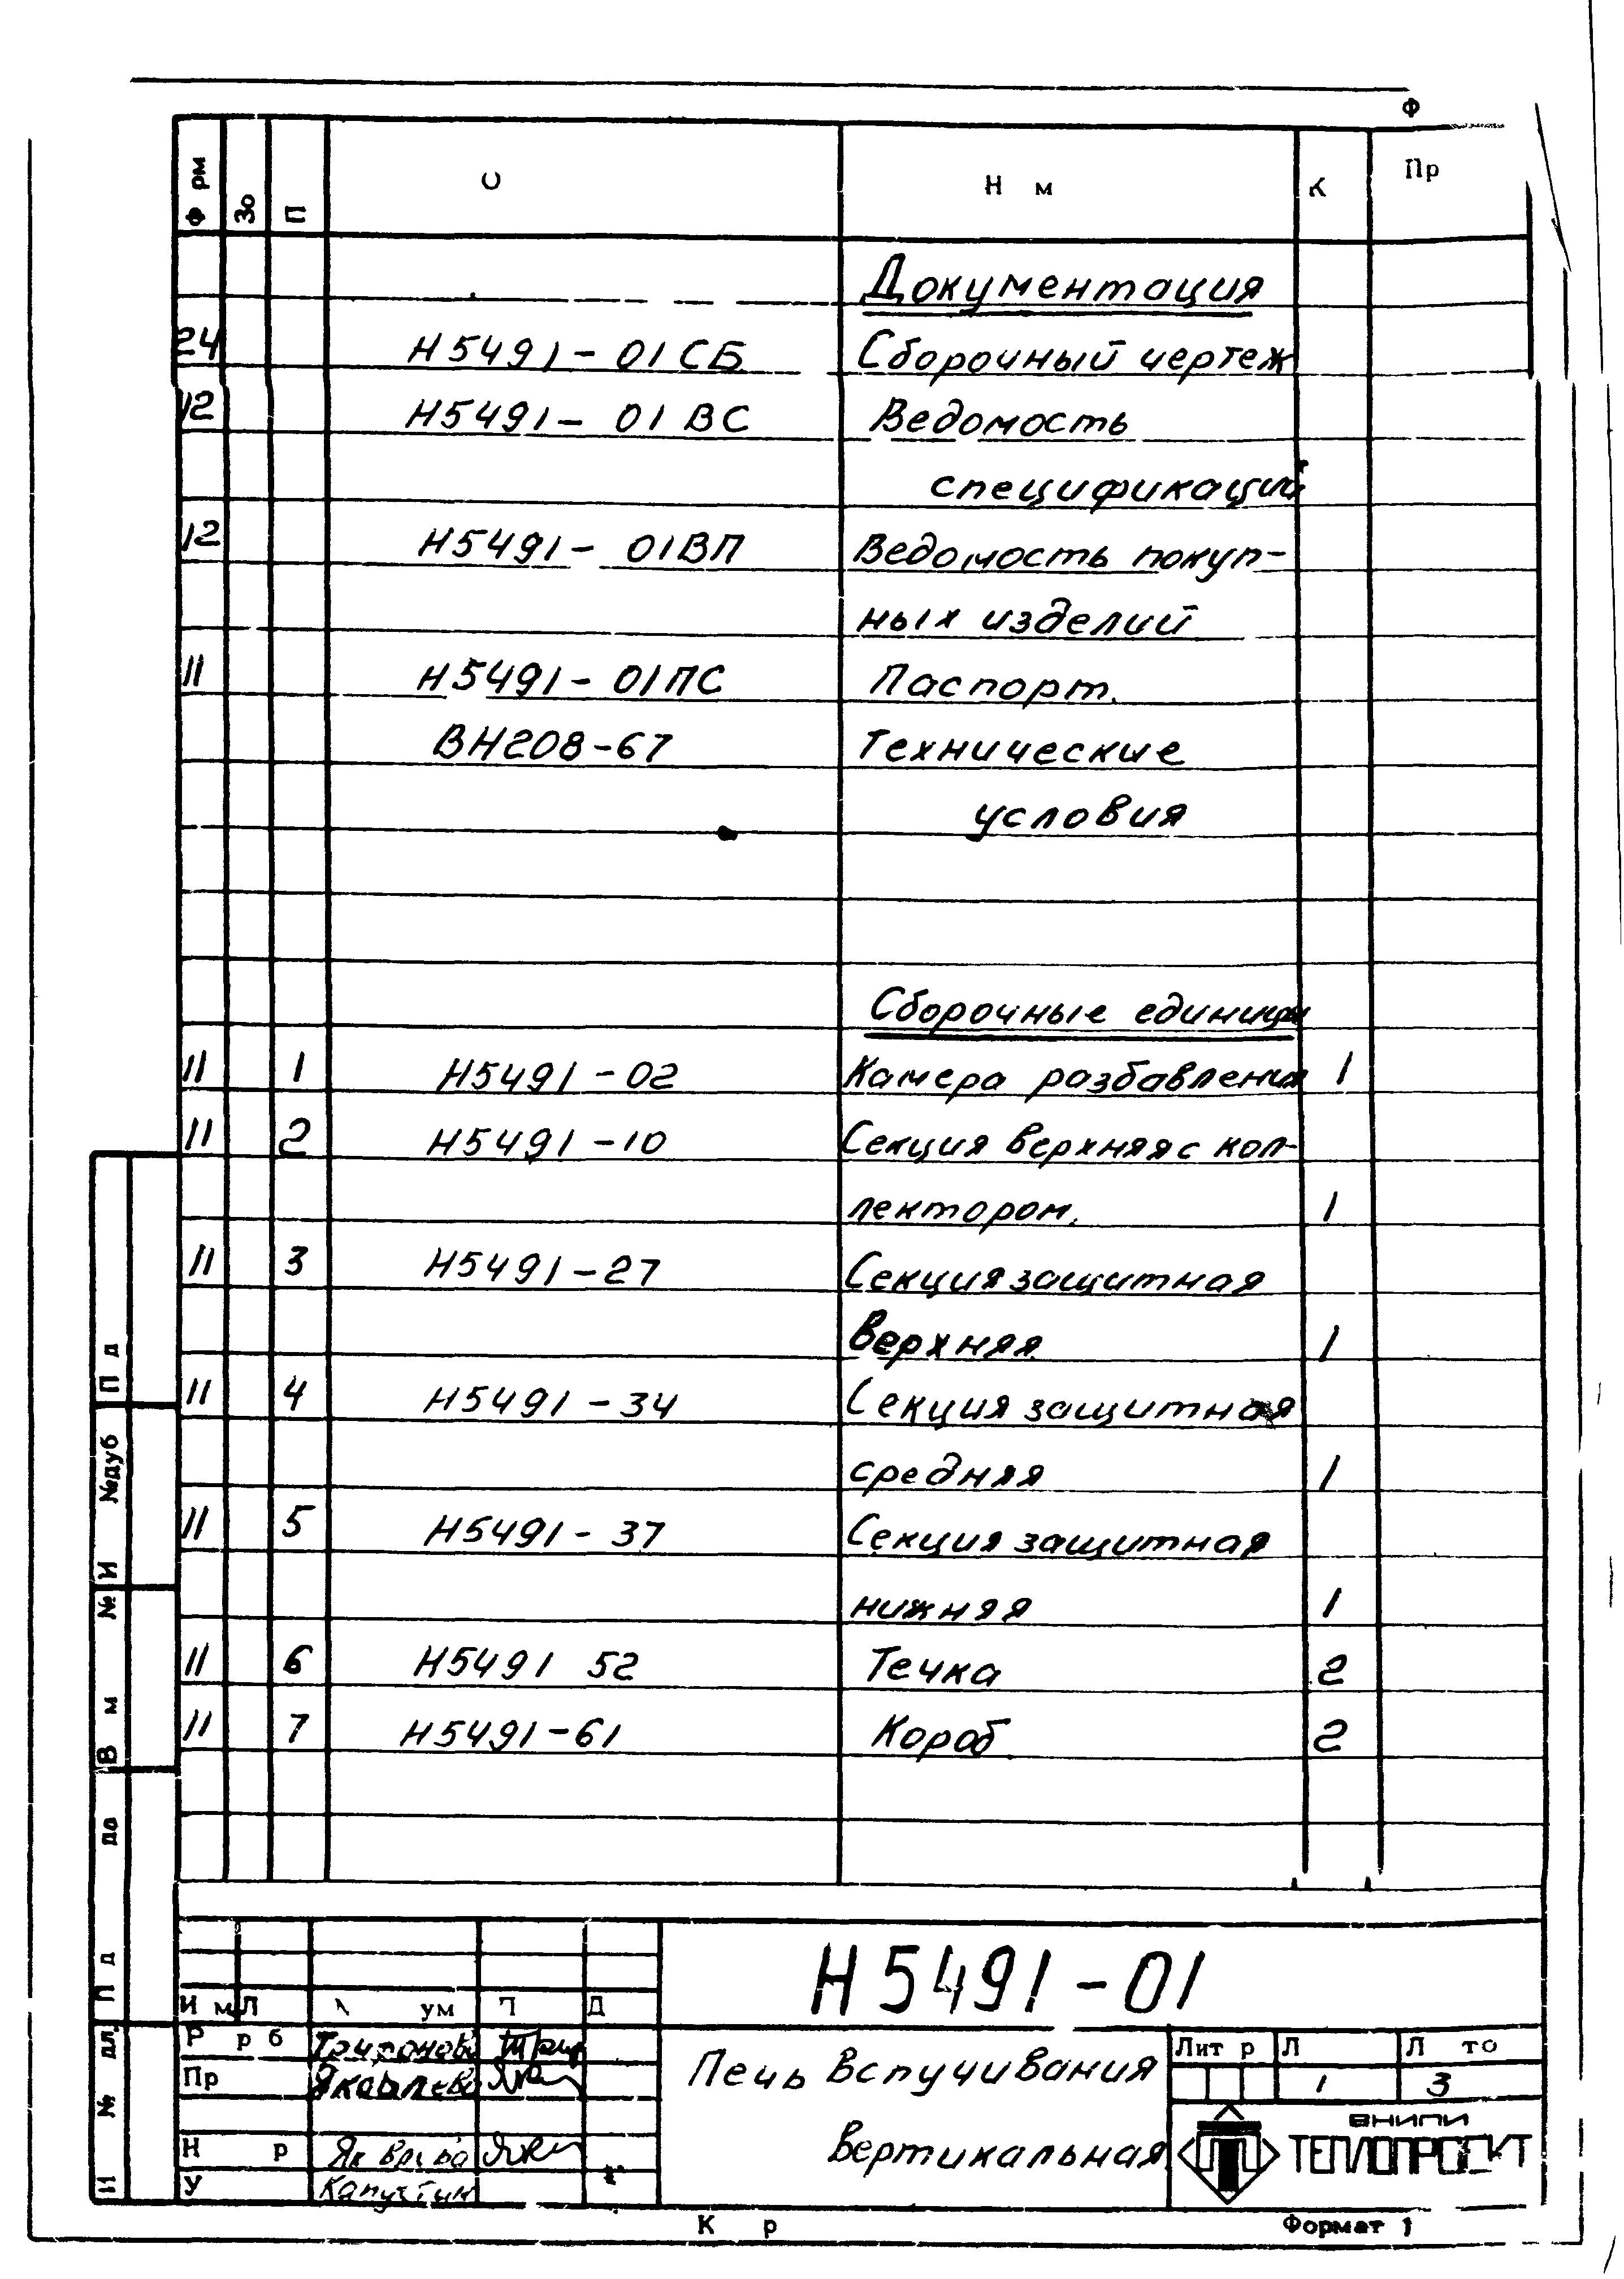 Ф
Ф рм Зо П О Н м К Пр
Документация
24 Н5491-01СБ Сборочный чертеж
12 Н5491-01ВС Ведомость
спецификаций
12 Н5491-01ВП Ведомость покуп-
ных изделий
11 Н5491-01ПС Паспорт.
ВН208-67 Технические
условия
Сборочные единицы
11 1 Н5491-02 Камера разбавления 1
11 2 Н5491-10 Секция верхняя с кол-
лектором. 1
11 3 Н5491-27 Секция защитная
верхняя 1
11 4 Н5491-34 Секция защитная
средняя 1
11 5 Н5491-37 Секция защитная
нижняя 1
11 6 Н5491 52 Течка 2
11 7 Н5491-61 Короб 2
П д
И №дуб
В м №
П д па
№ пл.
Н5491-01
И м Л ум П Д
Р р б
Пр Яковлева
Н р Як вл ва
У Капустин
Печь вспучивания
вертикальная
Лит р Л Л то
1 3
ВНИПИ
ТЕПЛОПРОЕКТ
К р Формат 1